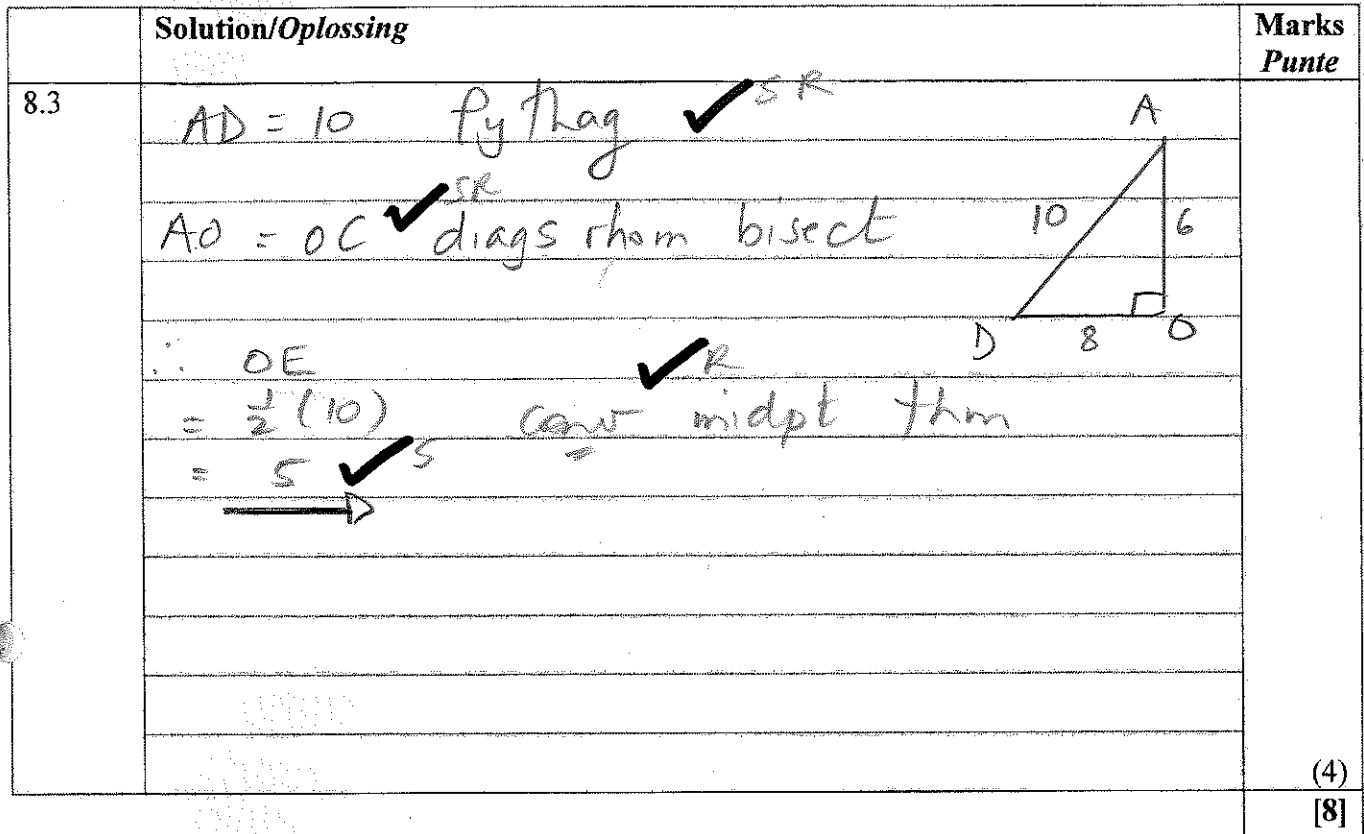 Solution/Oplossing
Marks
Punte
8.3
AD = 10 Pythag ✓ SR
AO = OC ✓ SR diags rhom bisect
∴ OE
= 1/2 (10) conv midpt thm ✓ R
= 5 ✓ S
A
10
6
D
8
O
(4)
[8]